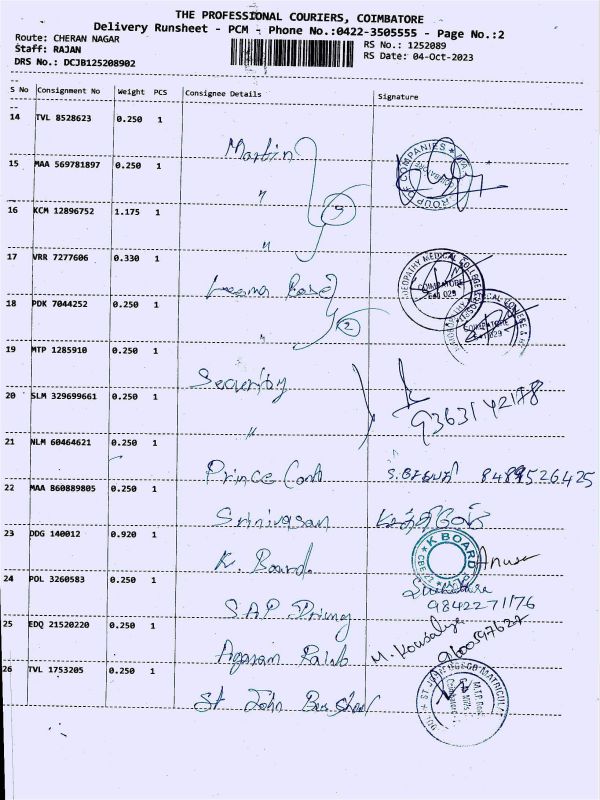 THE PROFESSIONAL COURIERS, COIMBATORE
Delivery Runsheet - PCM - Phone No.:0422-3505555 - Page No.:2
Route: CHERAN NAGAR
RS No.: 1252089
Staff: RAJAN
RS Date: 04-Oct-2023
DRS No.: DCJB125208902
S No Consignment No Weight PCS Consignee Details Signature
14 TVL 8528623 0.250 1 Martin
15 MAA 569781897 0.250 1 "
16 KCM 12896752 1.175 1 "
17 VRR 7277606 0.330 1
18 PDK 7044252 0.250 1 " 2
19 MTP 1285910 0.250 1 Security
20 SLM 329699661 0.250 1 " 9363142178
21 NLM 60464621 0.250 1 Prince 8489526425
22 MAA 860889805 0.250 1 Srinivasan
23 DDG 140012 0.920 1 K. Board K BOARD
24 POL 3260583 0.250 1 SAP 9842271176
25 EDQ 21520220 0.250 1 M. Kousalya 9600597627
26 TVL 1753205 0.250 1 St John